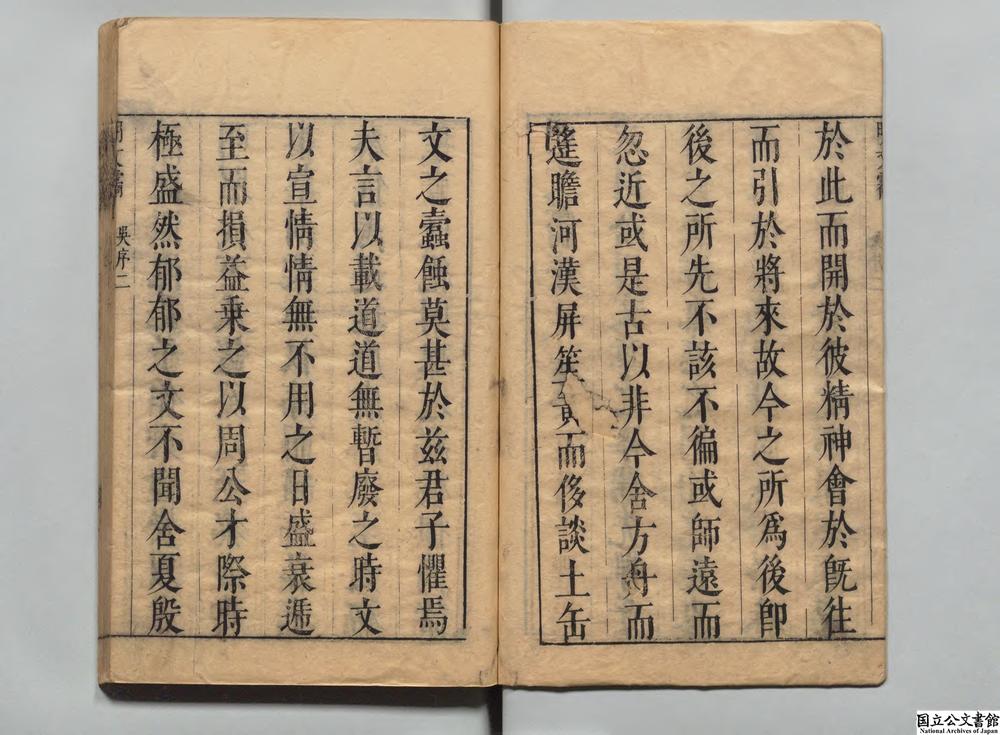 於此而開於彼精神會於旣往
而引於將來故今之所爲後卽
後之所先不該不徧或師遠而
忽近或是古以非今舍方舟而
遙瞻河漢屏笙而侈談土缶
文之蠹蝕莫甚於兹君子懼焉
夫言以載道道無暫廢之時文
以宣情情無不用之日盛衰遞
至而損益乗之以周公才際時
極盛然郁郁之文不聞舍夏殷
吳序二
国立公文書館
National Archives of Japan